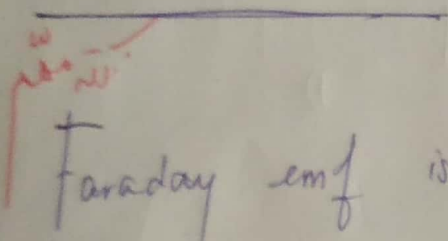 Faraday emf is